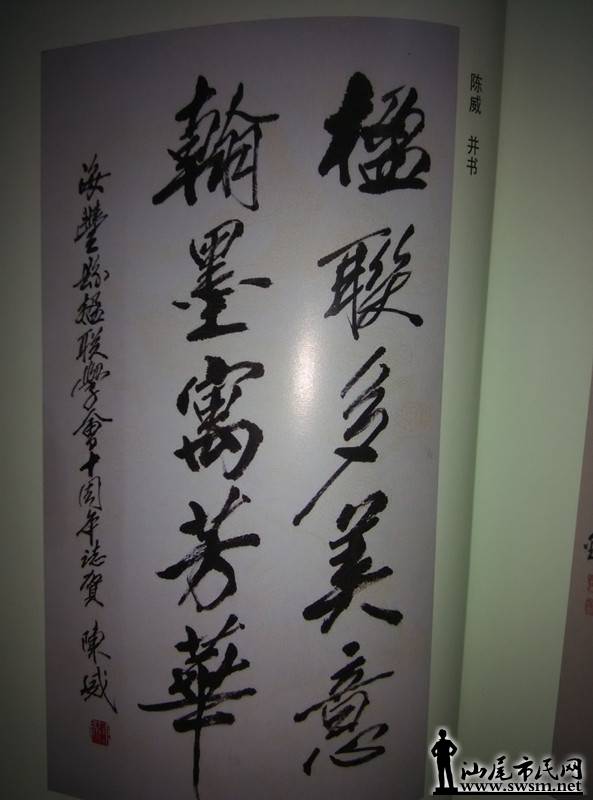 陈威 并书
楹聯多美意
翰墨寓芳華
海豐縣楹联學會十周年誌賀 陳威
汕尾市民网
www.swsm.net